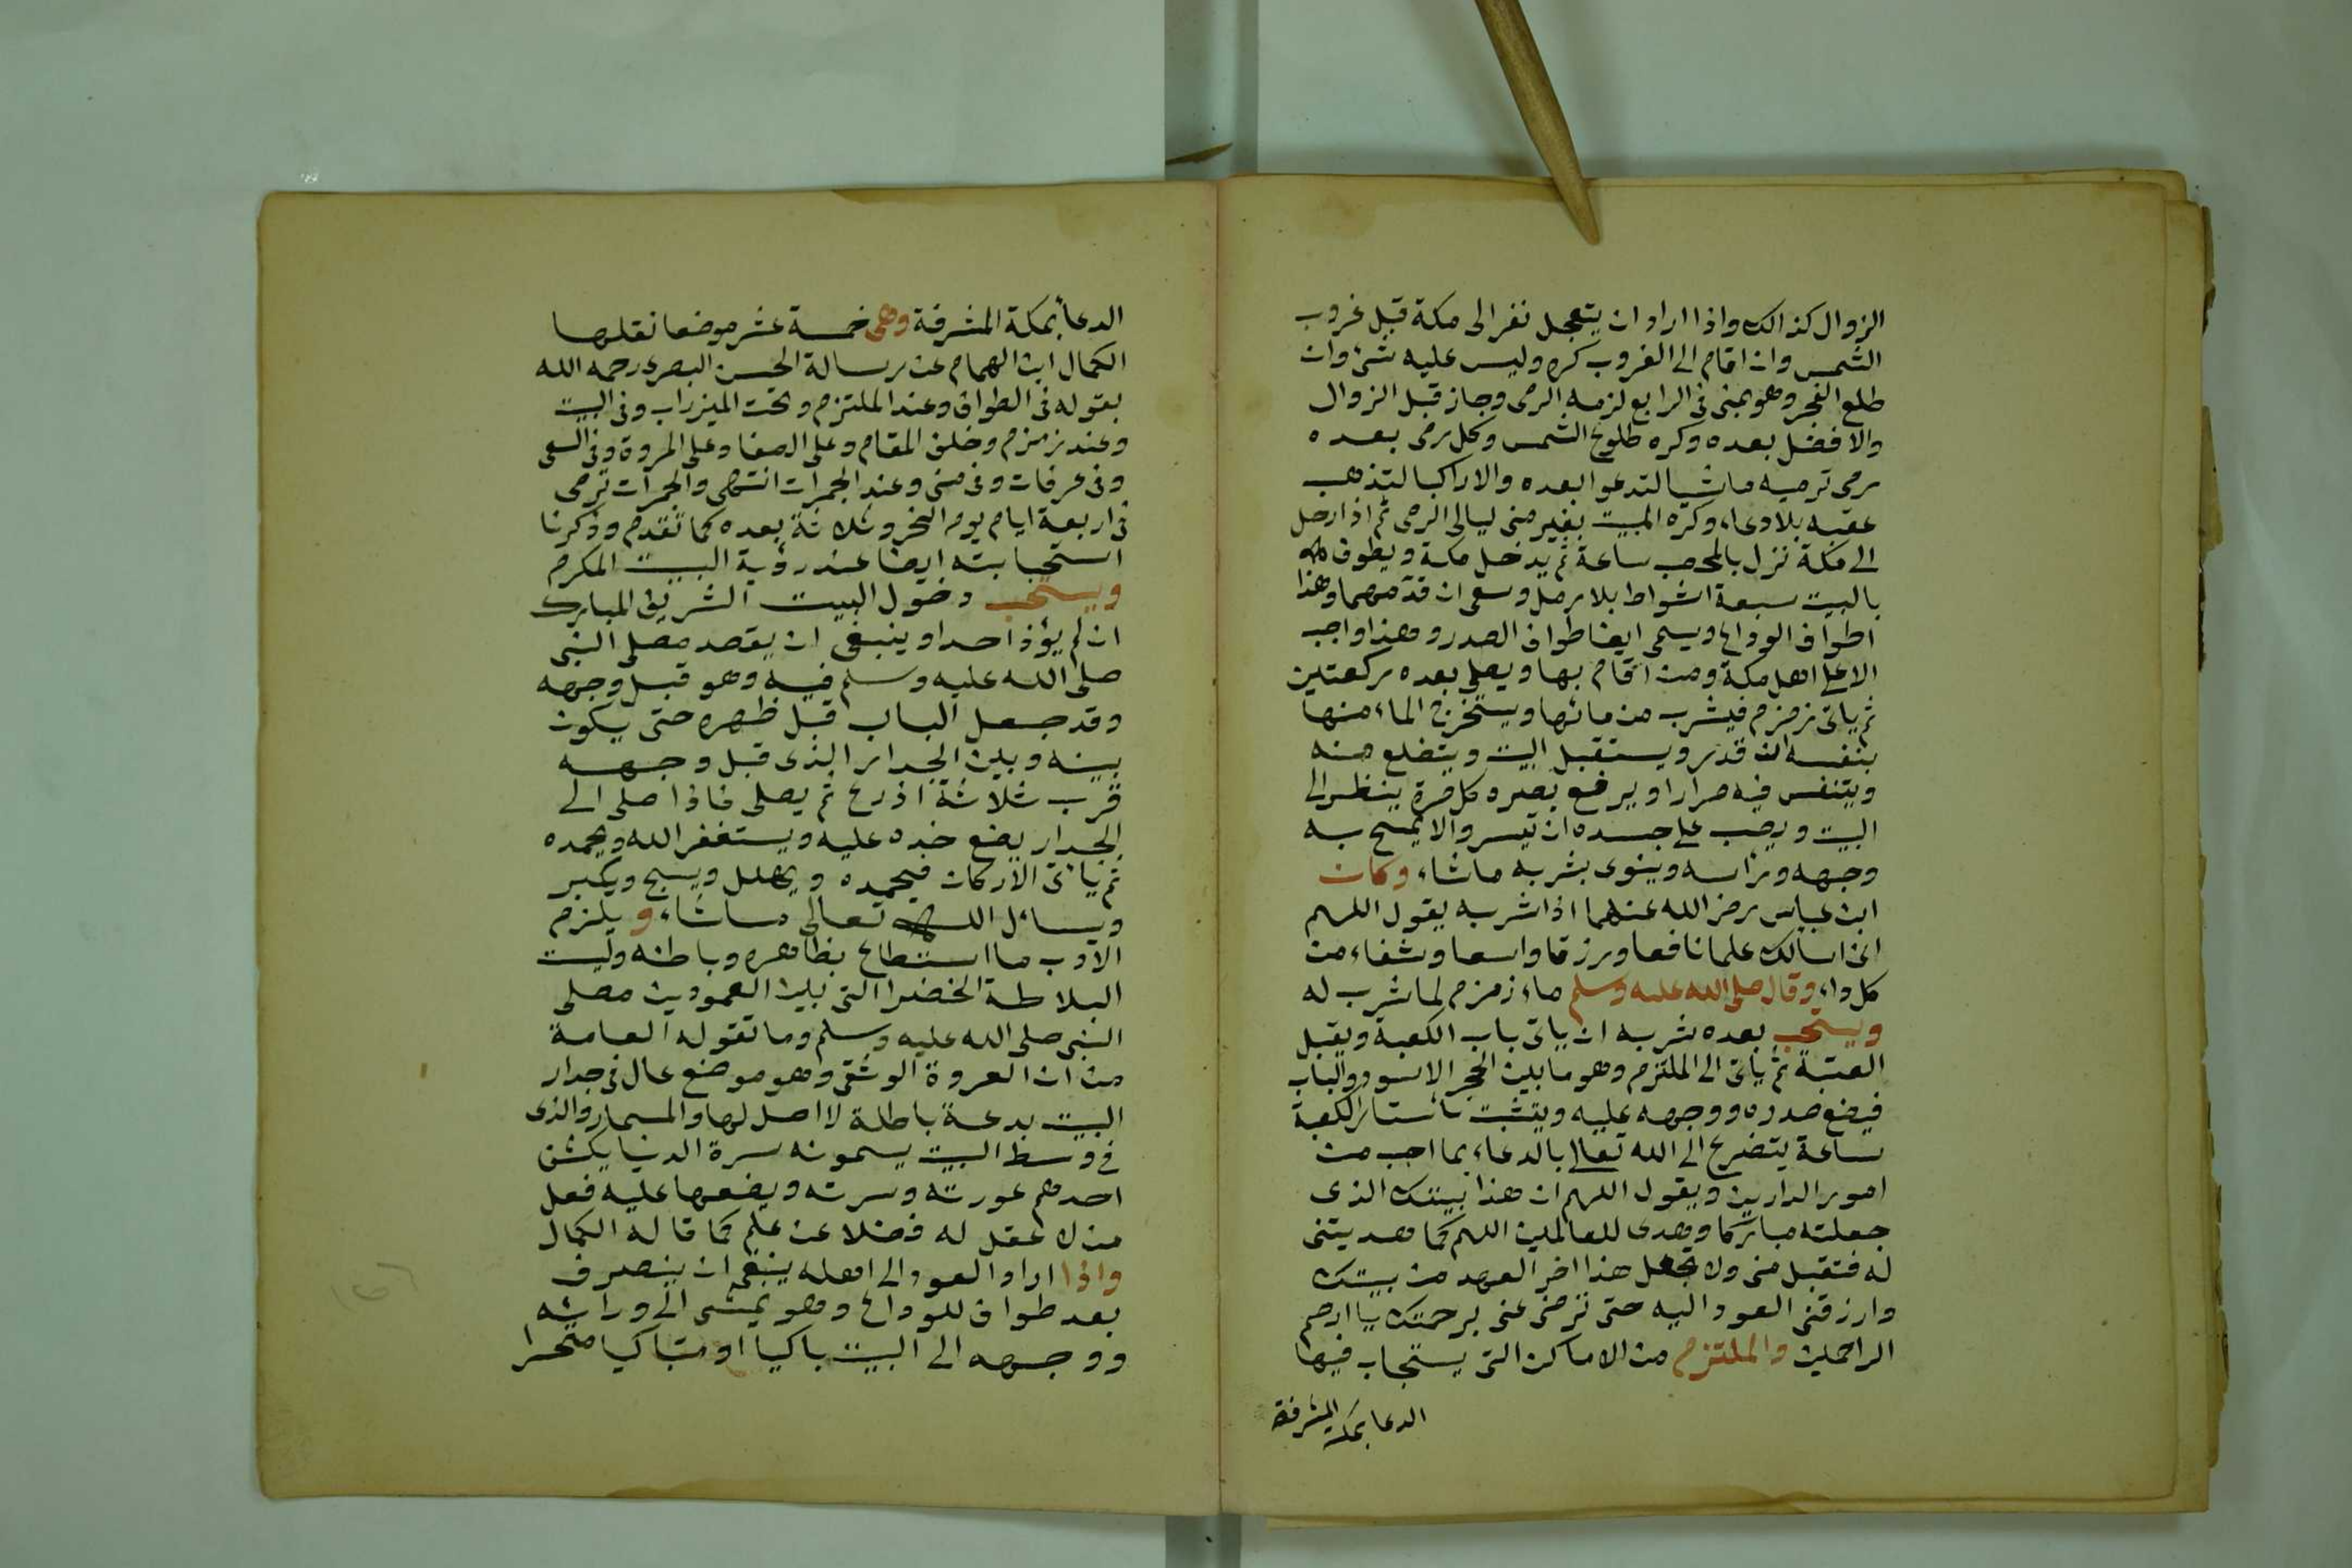 الزوال كذالك واذا اراد ان يتعجل نفر الى مكة قبل غروب
الشمس وان اقام الى الغروب كره وليس عليه شئ وان
طلع الفجر وهو بمنى فى الرابع لزمه الرمى وجاز قبل الزوال
والافضل بعده وكره طلوع الشمس وكل رمى بعده
رمى ترميه ماشيا لتدعوا بعده والا راكبا لتذهب
عقبه بلا دعاء وكره المبيت بغير منى ليالى الرمى ثم اذا رحل
الى مكة نزل بالمحصب ساعة ثم يدخل مكة ويطوف
بالبيت سبعة اشواط بلا رمل وسعى ان قدمهما وهذا
اطواف الوداع ويسمى ايضا طواف الصدر وهذا واجب
الا على اهل مكة ومن اقام بها ويصلى بعده ركعتين
ثم ياتى زمزم فيشرب من مائها ويستخرج الماء منها
بنفسه ان قدر ويستقبل البيت ويتضلع منه
ويتنفس فيه مرارا ويرفع بصره كل مرة ينظر الى
البيت ويصب على جسده ان تيسر والا يمسح به
وجهه وراسه وينوى بشربه ماشاء وكان
ابن عباس رضى الله عنهما اذا شربه يقول اللهم
انى اسالك علما نافعا ورزقا واسعا وشفاء من
كل داء وقال صلى الله عليه وسلم ماء زمزم لما شرب له
ويستحب بعده شربه ان ياتى باب الكعبة ويقبل
العتبة ثم ياتى الى الملتزم وهو ما بين الحجر الاسود والباب
فيضع صدره ووجهه عليه ويتشبث باستار الكعبة
ساعة يتضرع الى الله تعالى بالدعاء بما احب من
امور الدارين ويقول اللهم ان هذا بيتك الذى
جعلته مباركا وهدى للعالمين اللهم كما هديتنى
له فتقبل منى ولا تجعل هذا اخر العهد من بيتك
وارزقنى العود اليه حتى ترضى عنى برحمتك يا ارحم
الراحمين والملتزم من الاماكن التى يستجاب فيها
الدعا بمكة المشرفة
الدعا بمكة المشرفة وهى خمسة عشر موضعا نقلها
الكمال ابن الهمام عن رسالة الحسن البصرى رحمه الله
بقوله فى الطواف وعند الملتزم وتحت الميزراب وفى البيت
وعند زمزم وخلف المقام وعلى الصفا وعلى المروة وفى السعى
وفى عرفات وفى منى وعند الجمرات انتهى والجمرات ترمى
فى اربعة ايام يوم النحر وثلاثة بعده كما تقدم وذكرنا
استجابته ايضا عند رؤية البيت المكرم
ويستحب دخول البيت الشريف المبارك
ان لم يؤذ احدا وينبغى ان يقصد مصلى النبى
صلى الله عليه وسلم فيه وهو قبل وجهه
وقد جعل الباب قبل ظهره حتى يكون
بينه وبين الجدار الذى قبل وجهه
قرب ثلاثة اذرع ثم يصلى فاذا صلى الى
الجدار يضع خده عليه ويستغفر الله ويحمده
ثم ياتى الاركان فيحمده ويهلل ويسبح ويكبر
ويسائل الله تعالى ماشاء ويلزم
الادب ما استطاع بظاهره وباطنه وليست
البلاطة الخضرا التى بين العمودين مصلى
النبى صلى الله عليه وسلم وما تقوله العامة
من ان العروة الوثقى وهو موضع عال فى جدار
البيت بدعة باطلة لا اصل لها والمسمار والذى
فى وسط البيت يسمونه سرة الدنيا يكشف
احدهم عورته وسرته ويضعها عليه فعل
من لا عقل له فضلا عن علم كما قاله الكمال
واذا اراد العود الى اهله ينبغى ان ينصرف
بعد طواف للوداع وهو يمشى الى ورائه
ووجهه الى البيت باكيا او متباكيا متحسرا